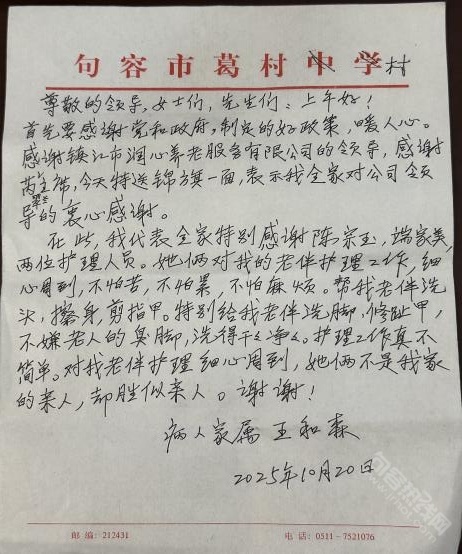 句容市葛村中学村
尊敬的领导,女士们,先生们、上午好!
首先要感谢党和政府,制定的好政策,暖人心。
感谢镇江市润心养老服务有限公司的领导,感谢
芮主席,今天特送锦旗一面,表示我全家对公司领
导的衷心感谢。
在此,我代表全家特别感谢陈宗玉,端家美,
两位护理人员。她俩对我的老伴护理工作,细
心周到,不怕苦,不怕累,不怕麻烦。帮我老伴洗
头,擦身,剪指甲。特别给我老伴洗脚,修趾甲,
不嫌老人的臭脚,洗得干干净净。护理工作真不
简单。对我老伴护理细心周到,她俩不是我家
的亲人,却胜似亲人。谢谢!
病人家属 王和森
2025年10月20日
邮编:212431 电话:0511-7521076